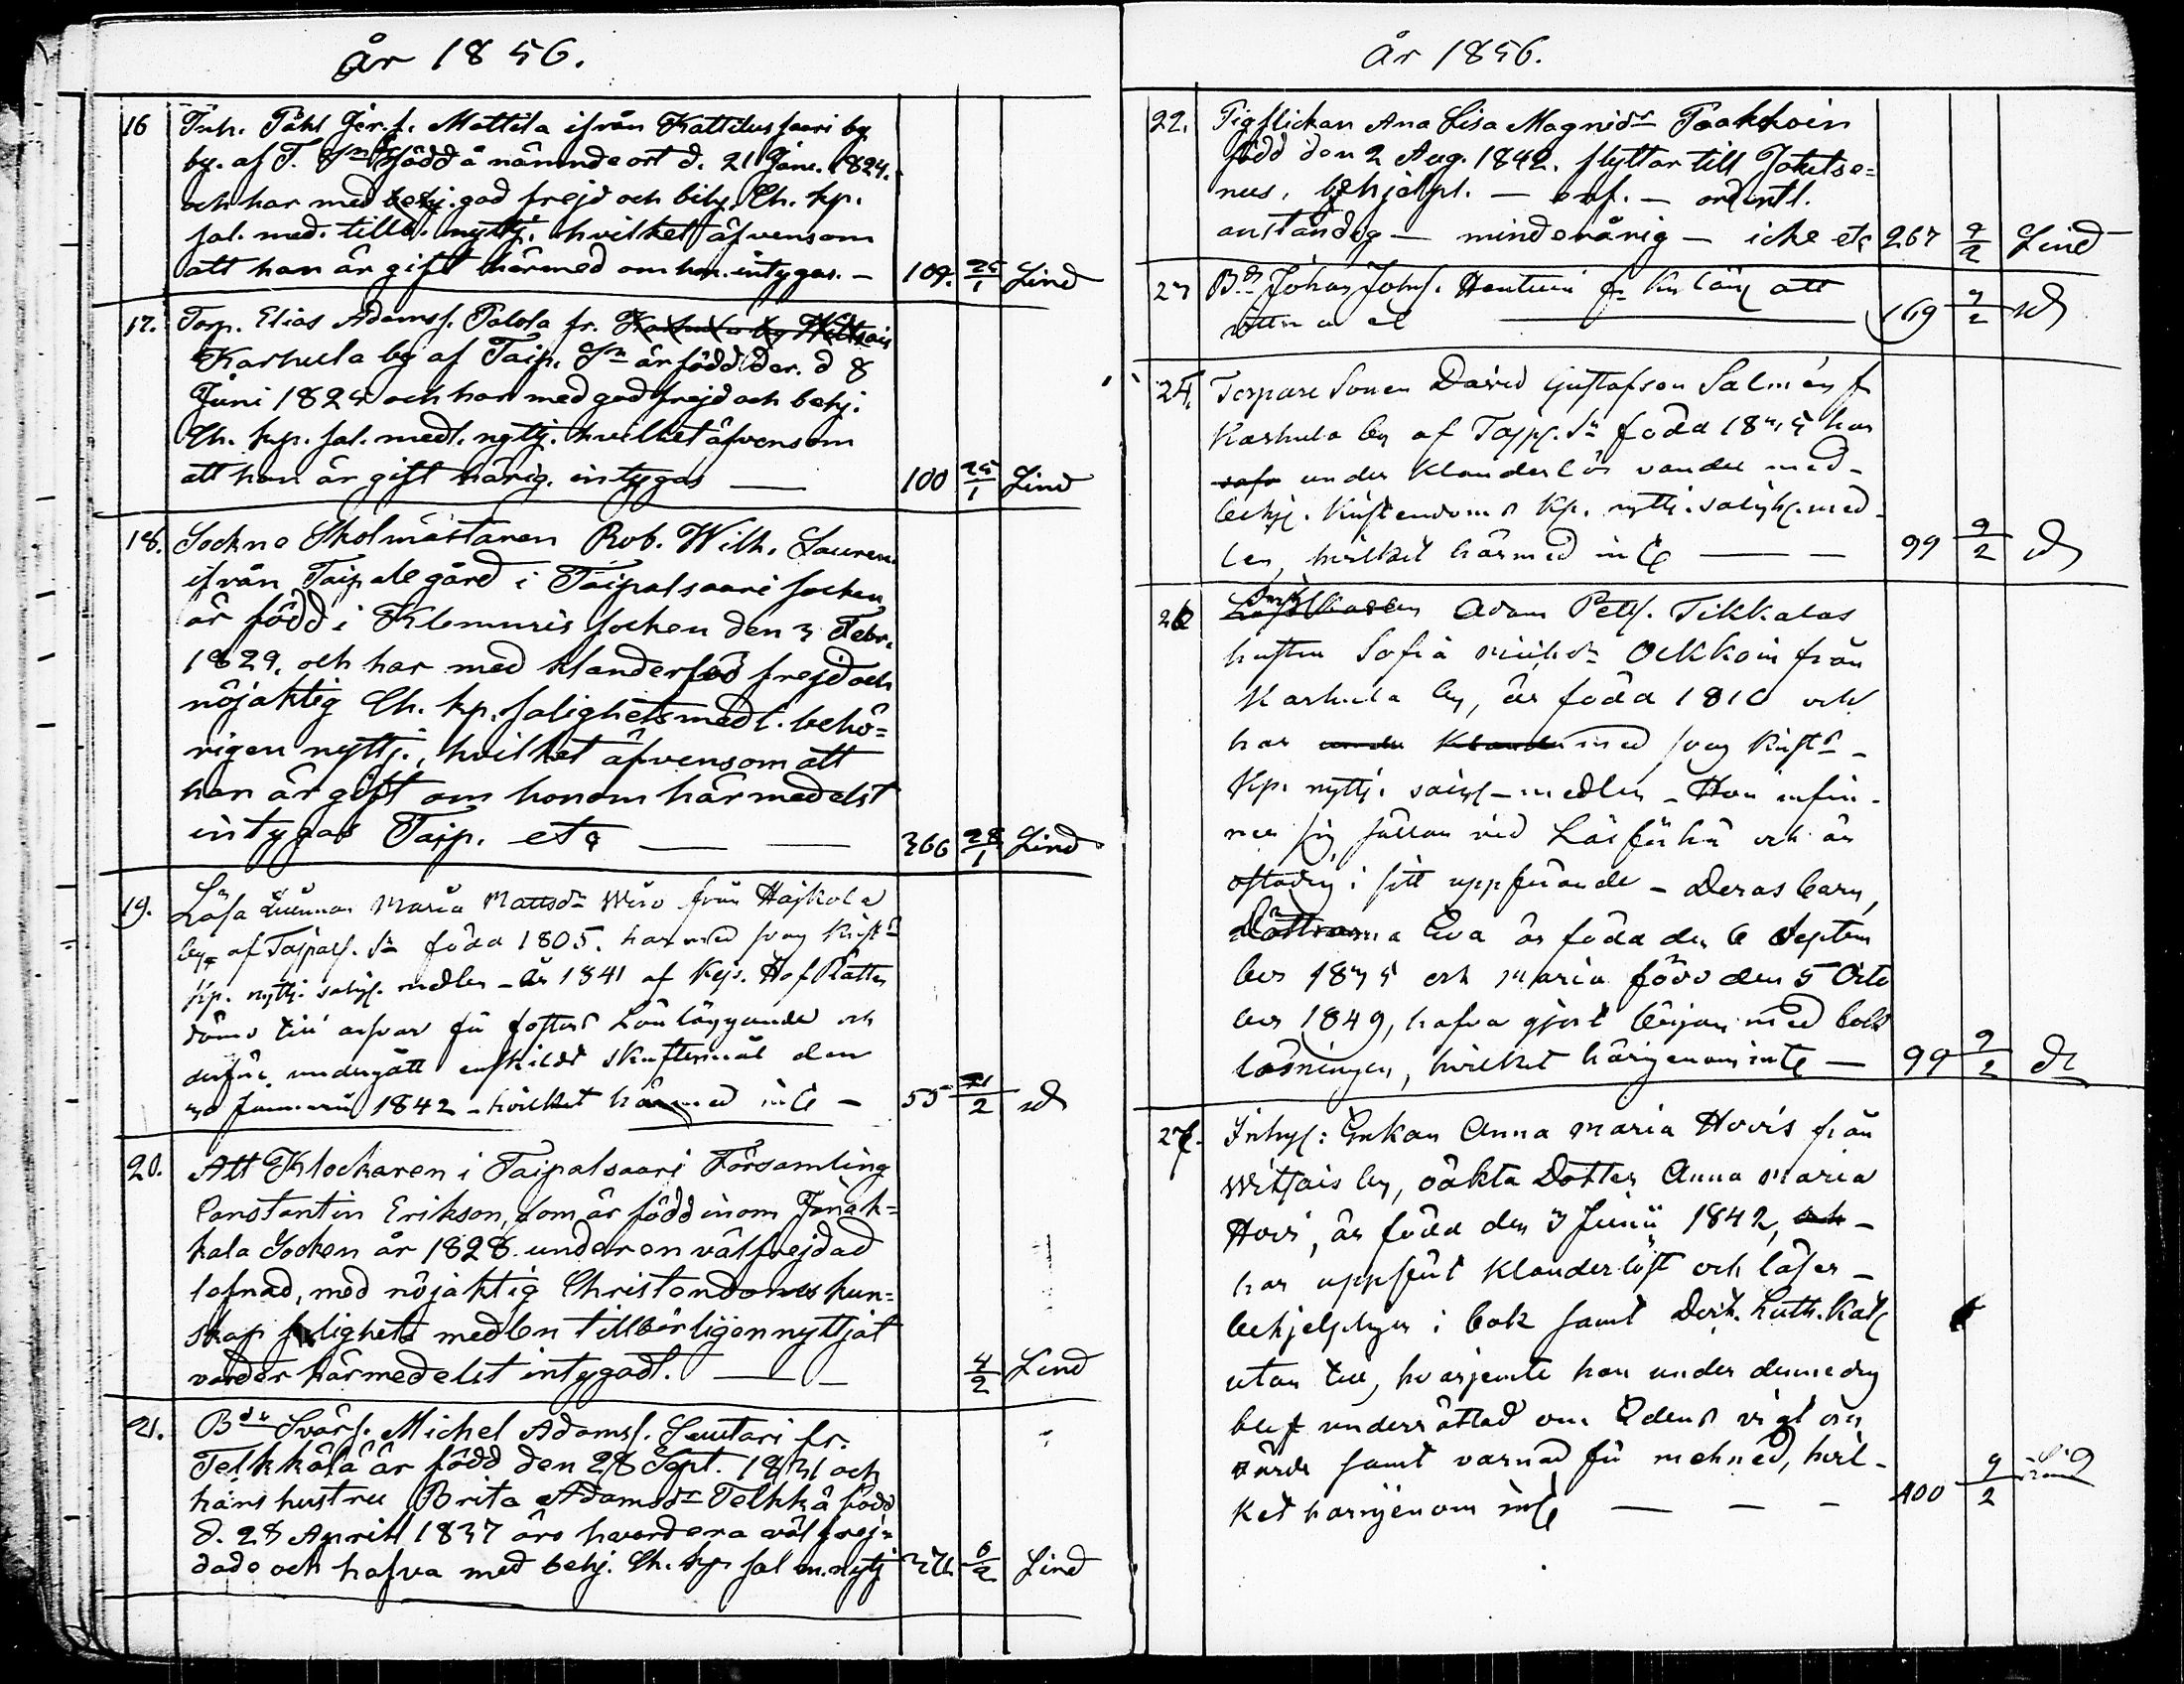 år 1856.
16 Inh. Påhl Jör.s. Mattila ifrån Kattelussaari by
by. af T. Sn född å nämnde ort d. 21 Jan. 1824.
och har med behj. god frejd och behj. Ch. kp.
sal. med. tillb. nyttj. hvilket äfvensom
att han är gift härmed om hon. intygas. — 109. 25/1 Lind
17. Torp. Elias Adamss. Palola fr.
Karhula by af Taip. Sn är född der. d 8
Juni 1825 och har med god frejd och behj.
Ch. kp. sal. medl. nyttj. hvilket äfvensom
att han är gift härig. intygas — 100 25/1 Lind
18. Sockne Skolmästaren Rob. Wilh. Lauren
ifrån Taipale gård i Taipalsaari socken
är född i Klemmis socken den 3 Febr.
1829. och har med klanderfød frejd och
nöjaktig Ch. kp. salighetsmedl. behö=
rigen nyttj., hvilket äfvensom att
han är gift om honom härmedelst
intygas Taip. etc — — 366 28/1 Lind
19. Lösa Qvinnan Maria Mattsdr Wiro från Haikola
by af Taipals. Sn föda 1805. har med svag Krist
kp. nyttj. salig. medlen – År 1841 af Kejs. Hof Rätten
dömd till ansvar för fosters Lönläggande och
derföre undergått enskildt skriftermål den
30 Januarii 1842 – hvilket härmed — 55 /2
20. Att Klockaren i Taipalsaari Församling
Constantin Erikson, som är född inom Janak=
kala Socken år 1828. under en välfrejdad
lefnad, med nöjaktig Christendoms kun=
skap salighets medlen tillbörligen nyttjat
varder härmedelst intygadt. — — 4/2 Lind
21. Bde Svärs. Michel Adamss. Suutari fr.
Telkkälä är född den 28 Sept. 1831 och
hans hustru Brita Adamsdr Telkkä född
d. 28 Aprill 1837 äro hvardera välfrej=
dade och hafva med behj. Ch. kp. sal m. nyttj 6/2 Lind
år 1856.
22. Pigflickan Ana Lisa Magnidr Paakkoin
född den 2 Aug. 1842. flyttar till Joutse=
nus, behjelpl. — enf. — ordentl.
anständig — minderårig — icke etc 267 7/2 Lind
23 Bds Johan Johs. Hentuin
att — 169 /2
24. Torpare Sonen David Gustafson Salmén f
Karhula by af Taip. Sn föda 18 har
under klanderlös vandel med
behj. Kristendoms kp. nyttj. saligh. med
len, hvilket härmed — — 99 9/2
26 Adam Petts. Tikkalas
hustru Sofia Ockkoin från
Karhula by, är föda 1810 och
har med svag Krist –
kp. nyttj. medlen – Hon infin-
ner sig sällan vid Läsförhör och är
ostadig i sitt uppförande – Deras barn,
Döttrarna Eva är föda den 6 Septem
ber 1845 och Maria född den 5 Octo
ber 1849, hafva gjort början med bok
läsningen, hvilket härigenom — 99 9/2
27. Inhys: Enkan Anna Maria Hovis från
Wittsais by, oäkta Dotter Anna Maria
Hovi, är föda den 3 Junii 1842, och –
har uppfört klanderlöst och läser –
behjelpligen i bok samt Luth. Kat
utan till, hvarjemte hon under denne dag
blef underrättad om Edens vigt och
värde samt varnad för mehned, hvil-
ket härigenom — — – 400 9/2